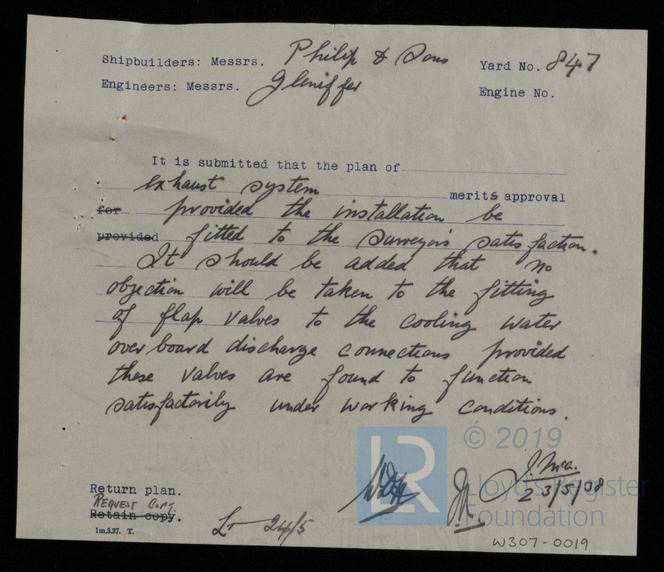 Shipbuilders: Messrs. Philip & Sons Yard No. 847
Engineers: Messrs. Gleniffer Engine No.
It is submitted that the plan of
exhaust system merits approval
for provided the installation be
provided fitted to the Surveyors satisfaction.
It should be added that no
objection will be taken to the fitting
of flap valves to the cooling water
overboard discharge connections provided
these valves are found to function
satisfactorily under working conditions.
© 2019
LR
Lloyd's Register
Foundation
Return plan.
REQUEST COPY.
Retain copy.
1m,3.37. T.
Lr 24/5
23/5/38
W307-0019